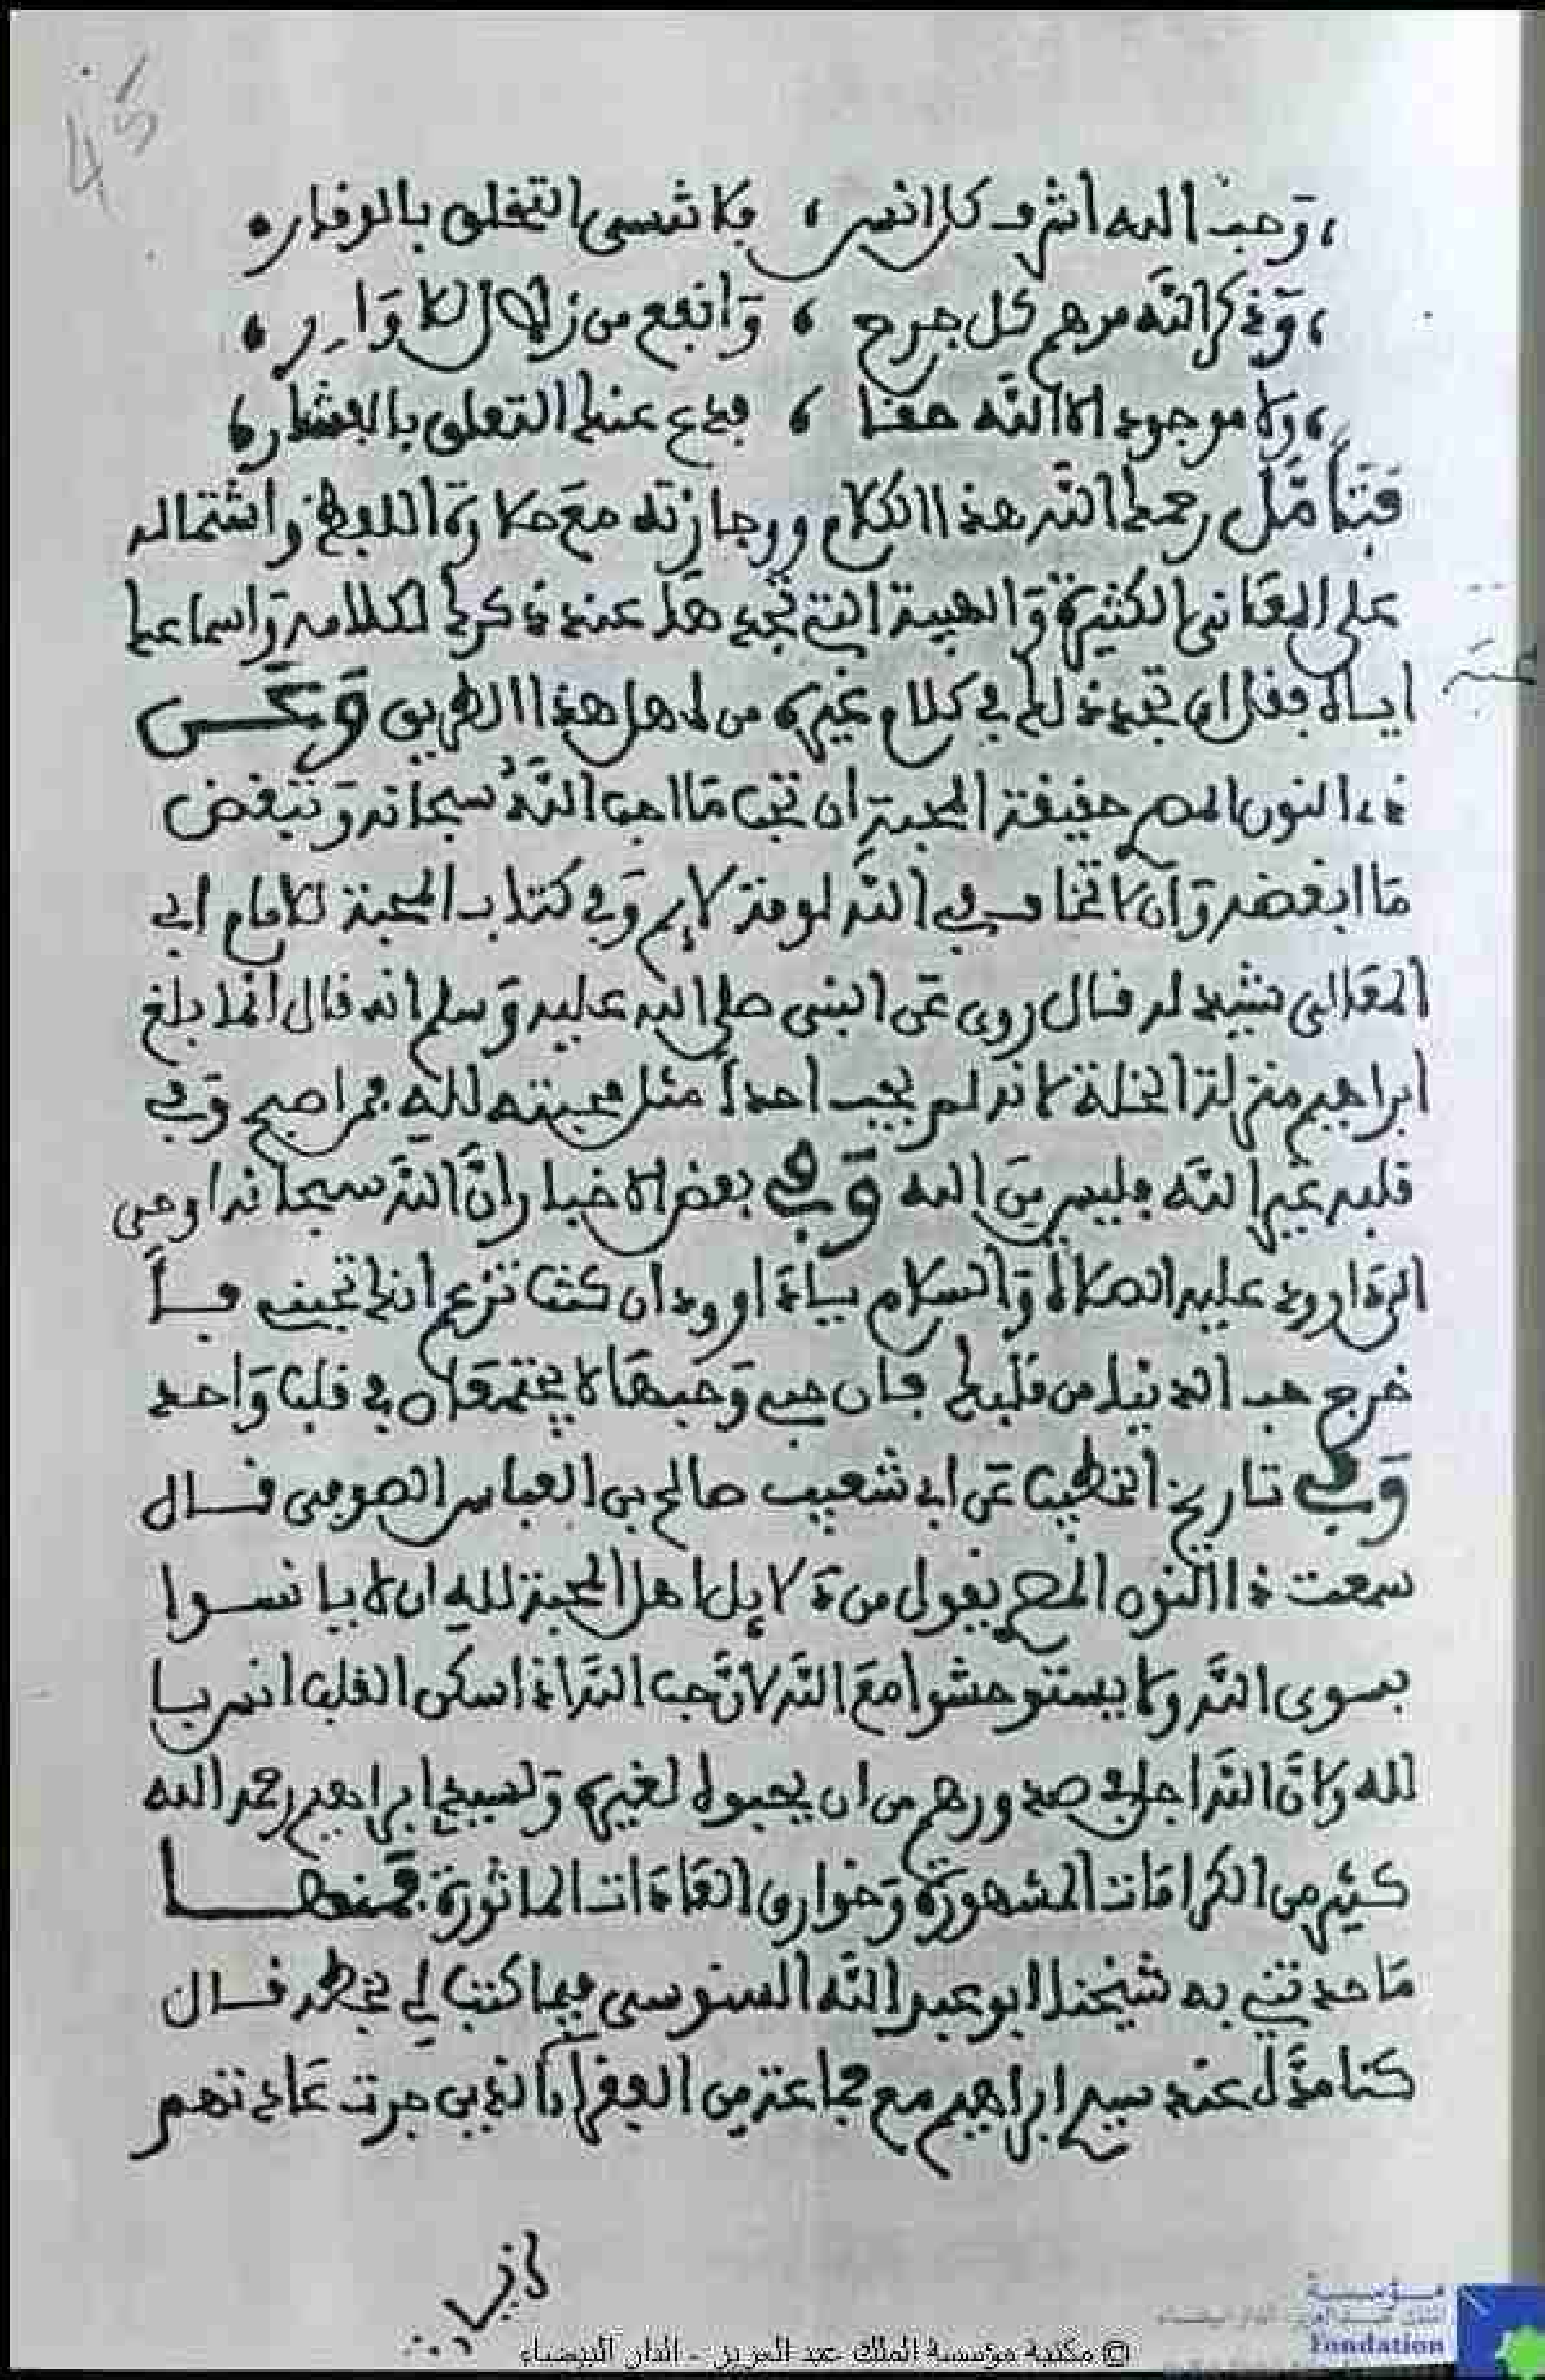 45
، وحب الله اشرف كل انس ، فلا تنسى التخلق بالوقار ،
، وذكر الله مرهم كل جرح ، وانفع من زلال للاوار ،
، ولا موجود الا الله حقا ، فدع عنك التعلق بالفشار ،
فَتَأمَّل رحمك الله هذا الكلام ووجازته مع حلاوة اللفظ واشتماله
على المعانى الكثيرة والهيبة التي تجدها عند ذكرك لكلامه واسماعك
اياه فقل ان تجد ذلك في كلام غيره من اهل هذا الطريق وَعَـن
ذي النون المصري حقيقة المحبة ان تحب ما احب الله سبحانه وتبغض
ما ابغضه وان لا تخاف في الله لومة لايم وفي كتاب المحبة للامام ابي
المعالى شيدله قال روى عن النبى صلى الله عليه وسلم انه قال انما بلغ
ابراهيم منزلة الخلة لانه لم يحب احداً مثل محبته لله فمن اصبح وفي
قلبه غير الله فليس من الله وَفي بعض الاخبار انّ الله سبحانه اوحى
الى داوود عليه الصلاة والسلام يا داوود ان كنت تزعم انك تحبنى فـا
خرج حب الدنيا من قلبك فان حبي وحبها لا يجتمعان في قلب واحد
وَفي تاريخ الخطيب عن ابي شعيب صالح بن العباس الصوفى قـال
سمعت ذا النون المصري يقول من دلايل اهل المحبة لله ان لا يانسوا
بسوى الله ولا يستوحشوا مع الله لانّ حب الله اذا سكن القلب انس با
لله ولانّ الله اجل في صدورهم من ان يحبوا لغيره ولسيدي ابراهيم رحمه الله
كثير من الكرامات المشهورة وخوارق العادات الماثورة فمنهـا
ما حدثني به شيخنا ابو عبد الله السنوسى فيما كتب لي بخطه قـال
كنا عند سيدي ابراهيم مع جماعة من الفقرا الذين جرت عادتهم
© مكتبة مؤسسة الملك عبد العزيز - الدار البيضاء
مؤسسة
الملك عبد العزيز الدار البيضاء
Fondation